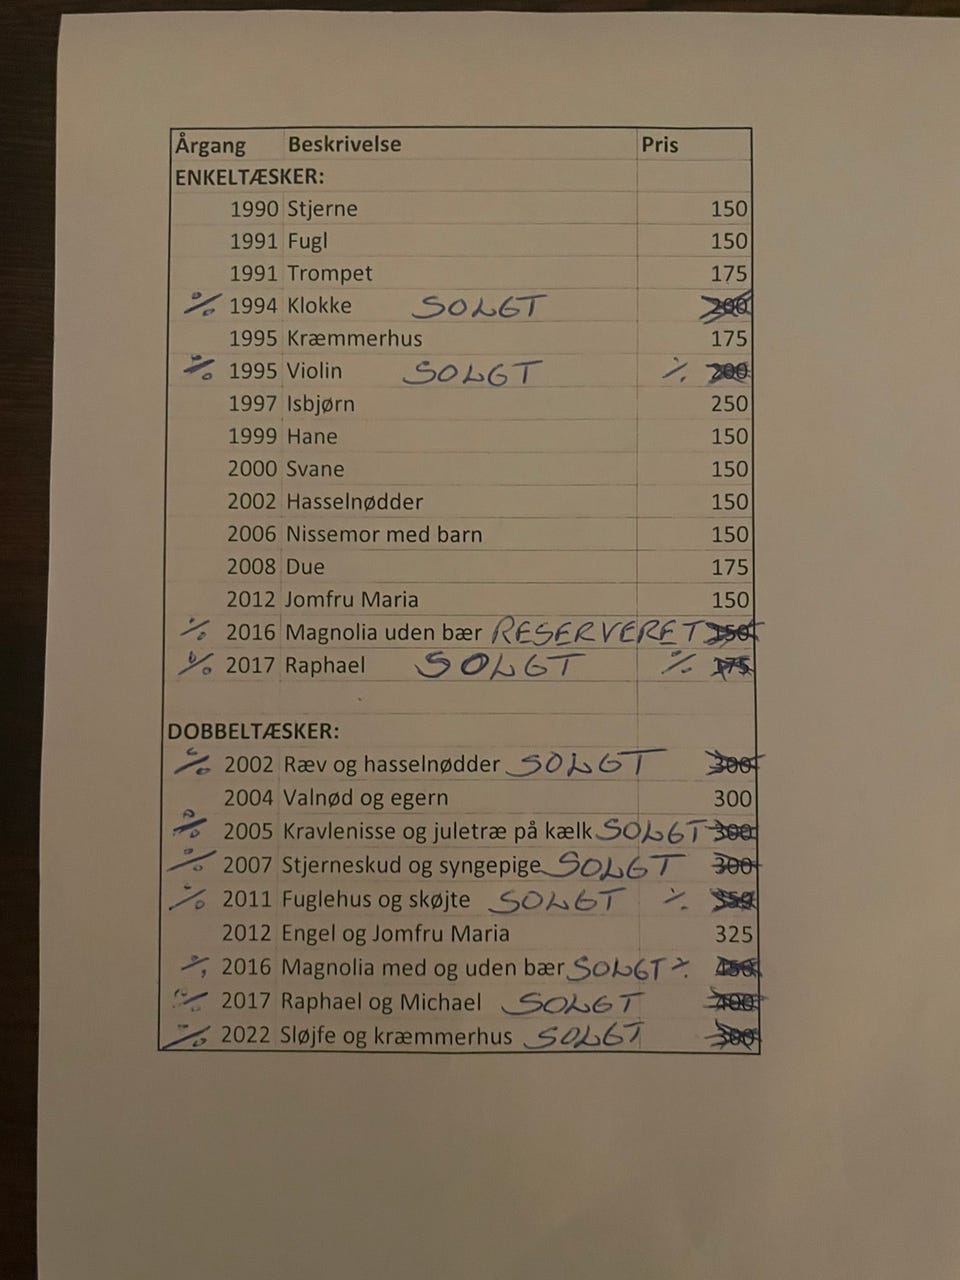 Årgang Beskrivelse Pris
ENKELTÆSKER:
1990 Stjerne 150
1991 Fugl 150
1991 Trompet 175
% 1994 Klokke SOLGT 200
1995 Kræmmerhus 175
% 1995 Violin SOLGT % 200
1997 Isbjørn 250
1999 Hane 150
2000 Svane 150
2002 Hasselnødder 150
2006 Nissemor med barn 150
2008 Due 175
2012 Jomfru Maria 150
% 2016 Magnolia uden bær RESERVERET 150
% 2017 Raphael SOLGT % 175
DOBBELTÆSKER:
% 2002 Ræv og hasselnødder SOLGT 300
2004 Valnød og egern 300
% 2005 Kravlenisse og juletræ på kælk SOLGT 300
% 2007 Stjerneskud og syngepige SOLGT 300
% 2011 Fuglehus og skøjte SOLGT % 350
2012 Engel og Jomfru Maria 325
% 2016 Magnolia med og uden bær SOLGT % 450
% 2017 Raphael og Michael SOLGT 400
% 2022 Sløjfe og kræmmerhus SOLGT 300